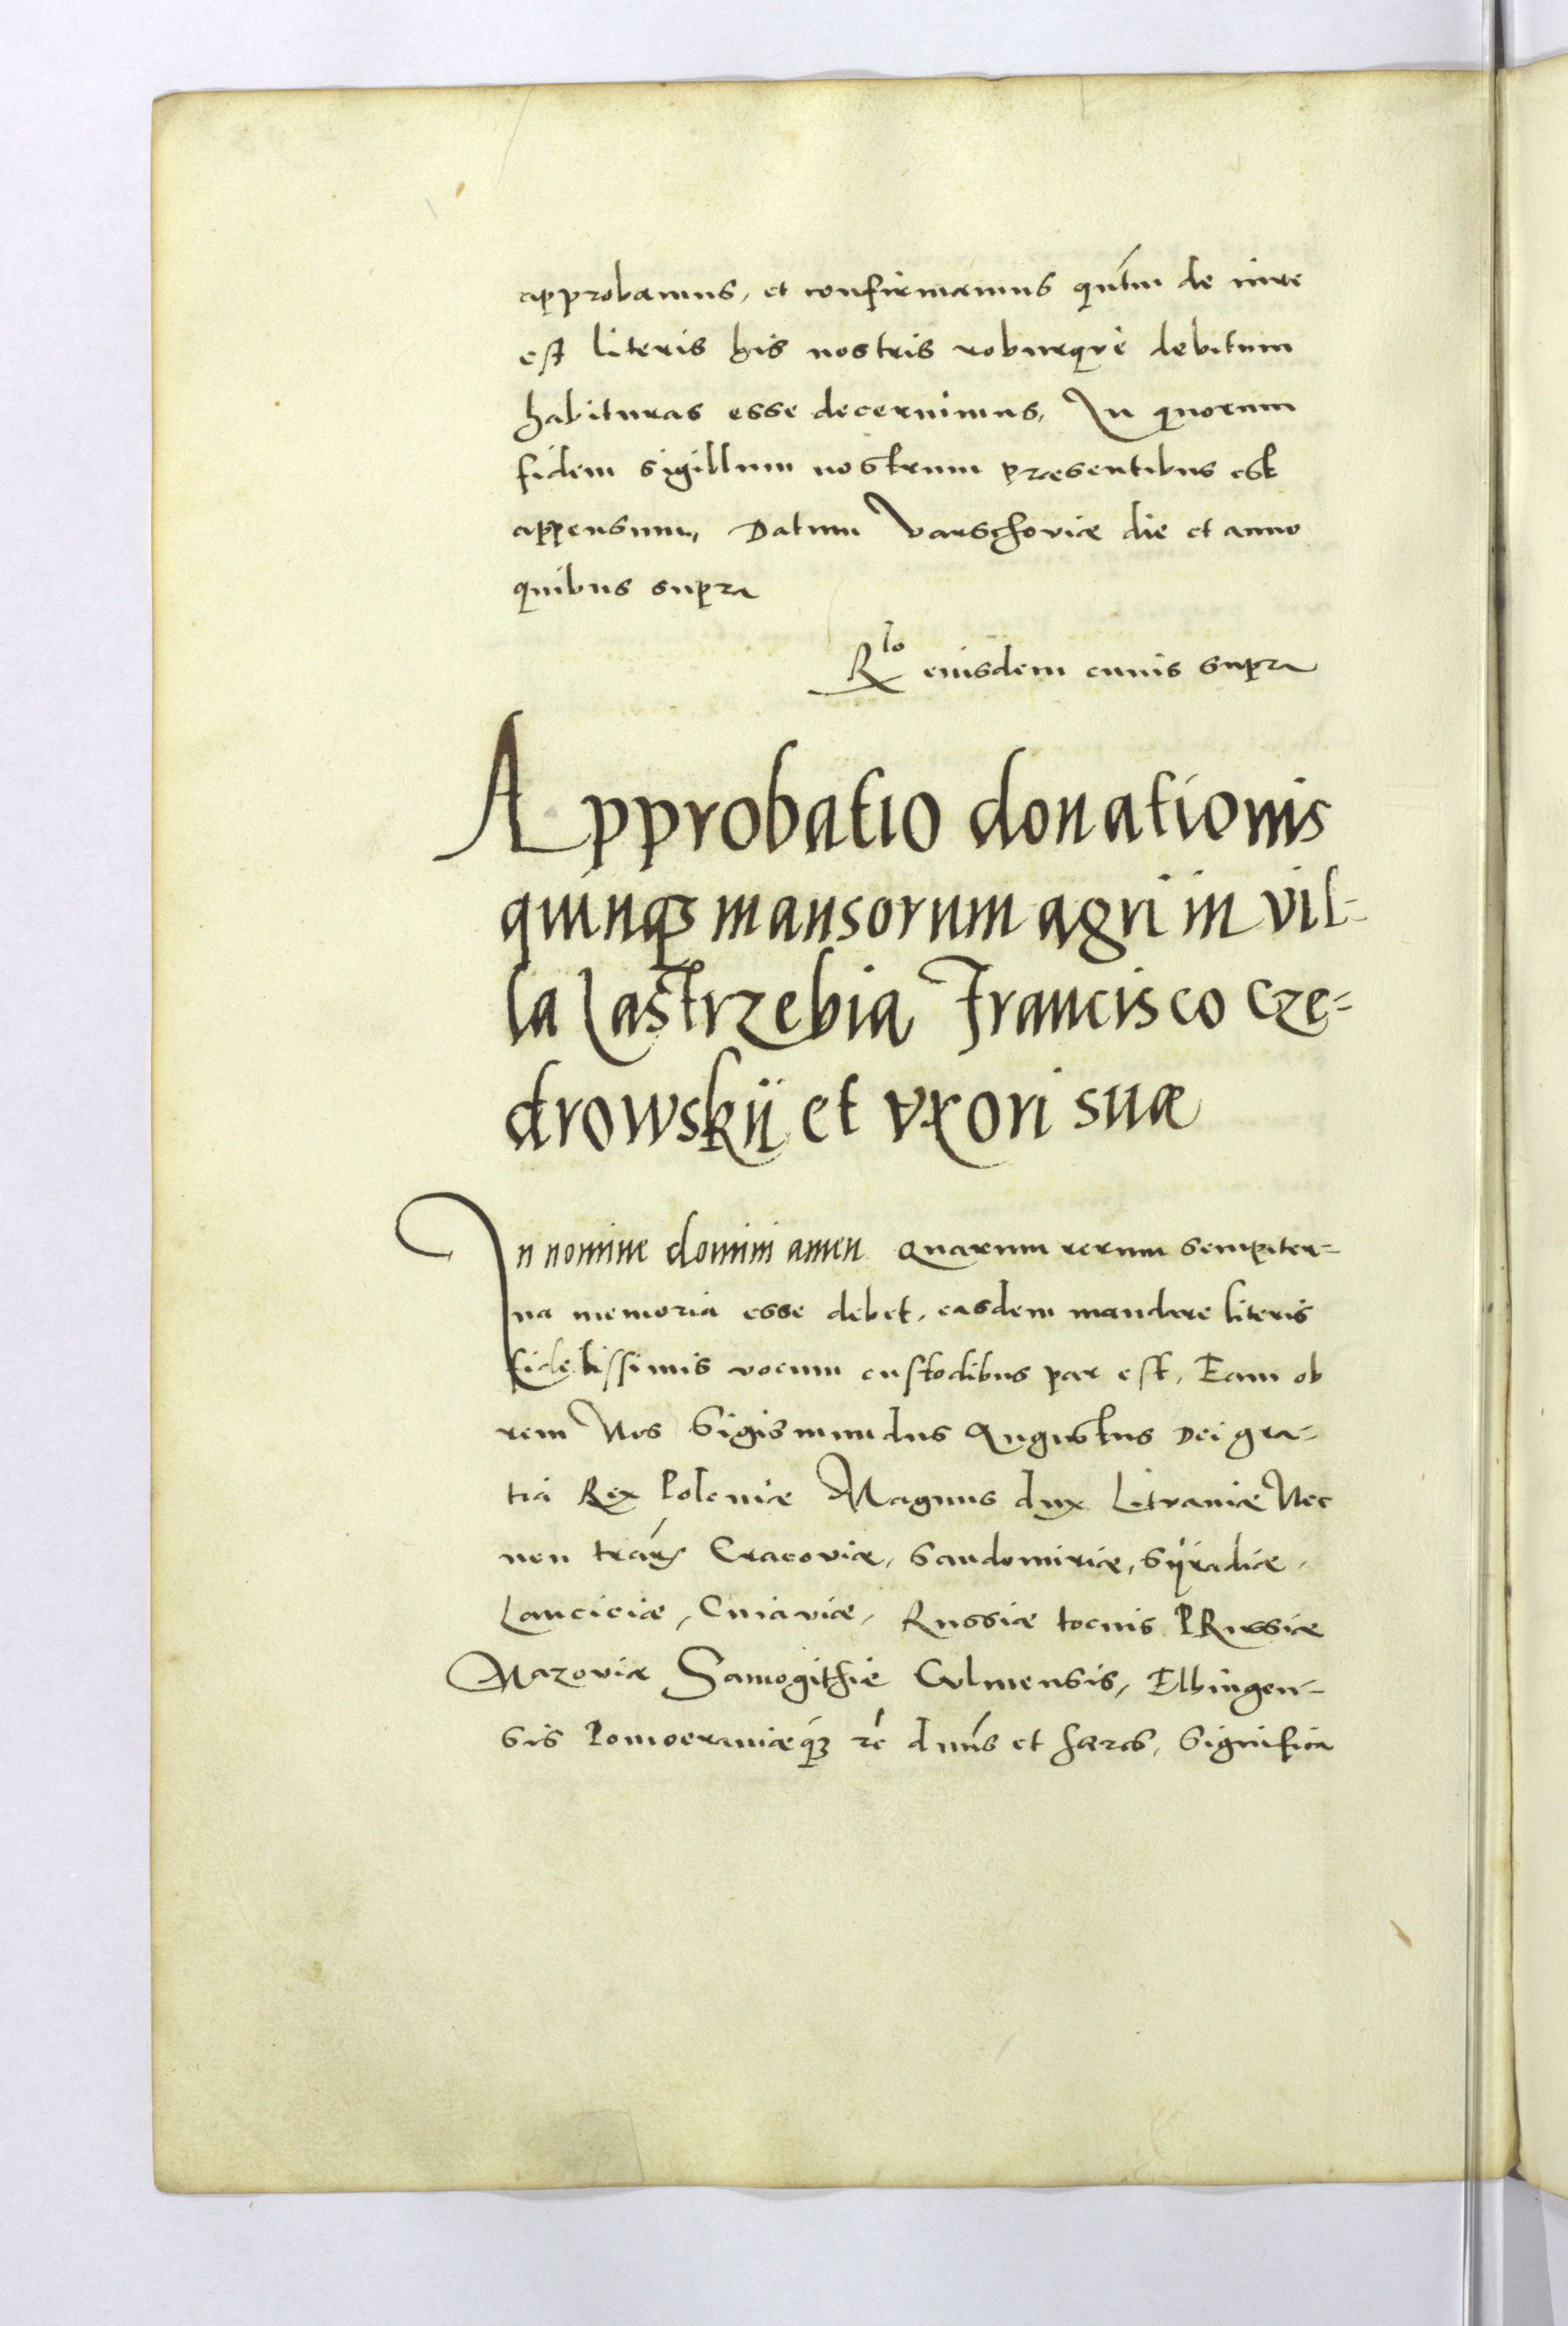 approbamus, et confirmamus qntm de iure
est literis his nostris roburque debitum
habituras esse decernimus, In quorum
fidem sigillum nostrum præsentibus est
appensum, Datum Varschoviæ die et anno
quibus supra
Rlo eiusdem cuius supra
Approbatio donationis
quinq mansorum agri in vil-
la Iastrzebia Francisco Cze-
drowskij et vxori suæ
In nomine domini amen Quarum rerum sempiter-
na memoria esse debet, easdem mandare literis
fidelissimis vocum custodibus par est, Eam ob
rem Nos Sigismundus Augustus Dei gra-
tia Rex Poloniæ Magnus dux Lituaniæ Nec
non trarum Cracoviæ, Sandomiriæ, Syradiæ,
Lanciciæ, Cuiaviæ, Russiæ tocius PRussiæ
Mazoviæ Samogithiæ Culmensis, Elbingen-
sis Pomoeraniæq3 rc dnns et hæres, Significa